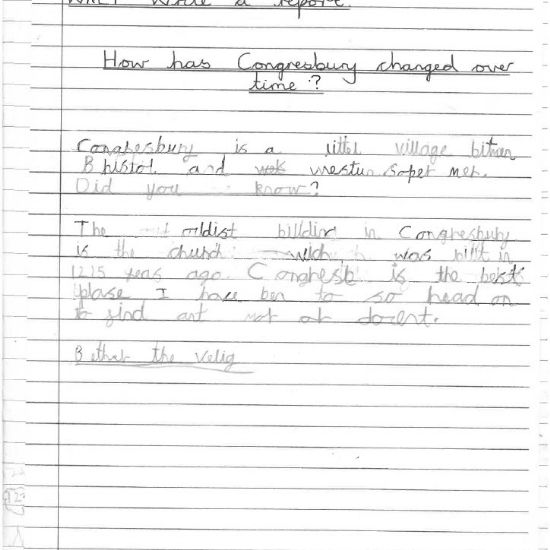 write a report.
How has Congresbury changed over
time?
Congresbury is a littel village bitwen
Bristol and westun soper mer.
Did you know?
The oldist billding in Congresbury
is the church which was billt in
1215 years ago. Congresb is the best
plase I have ben to so head on
to find out mor
B ether the velig